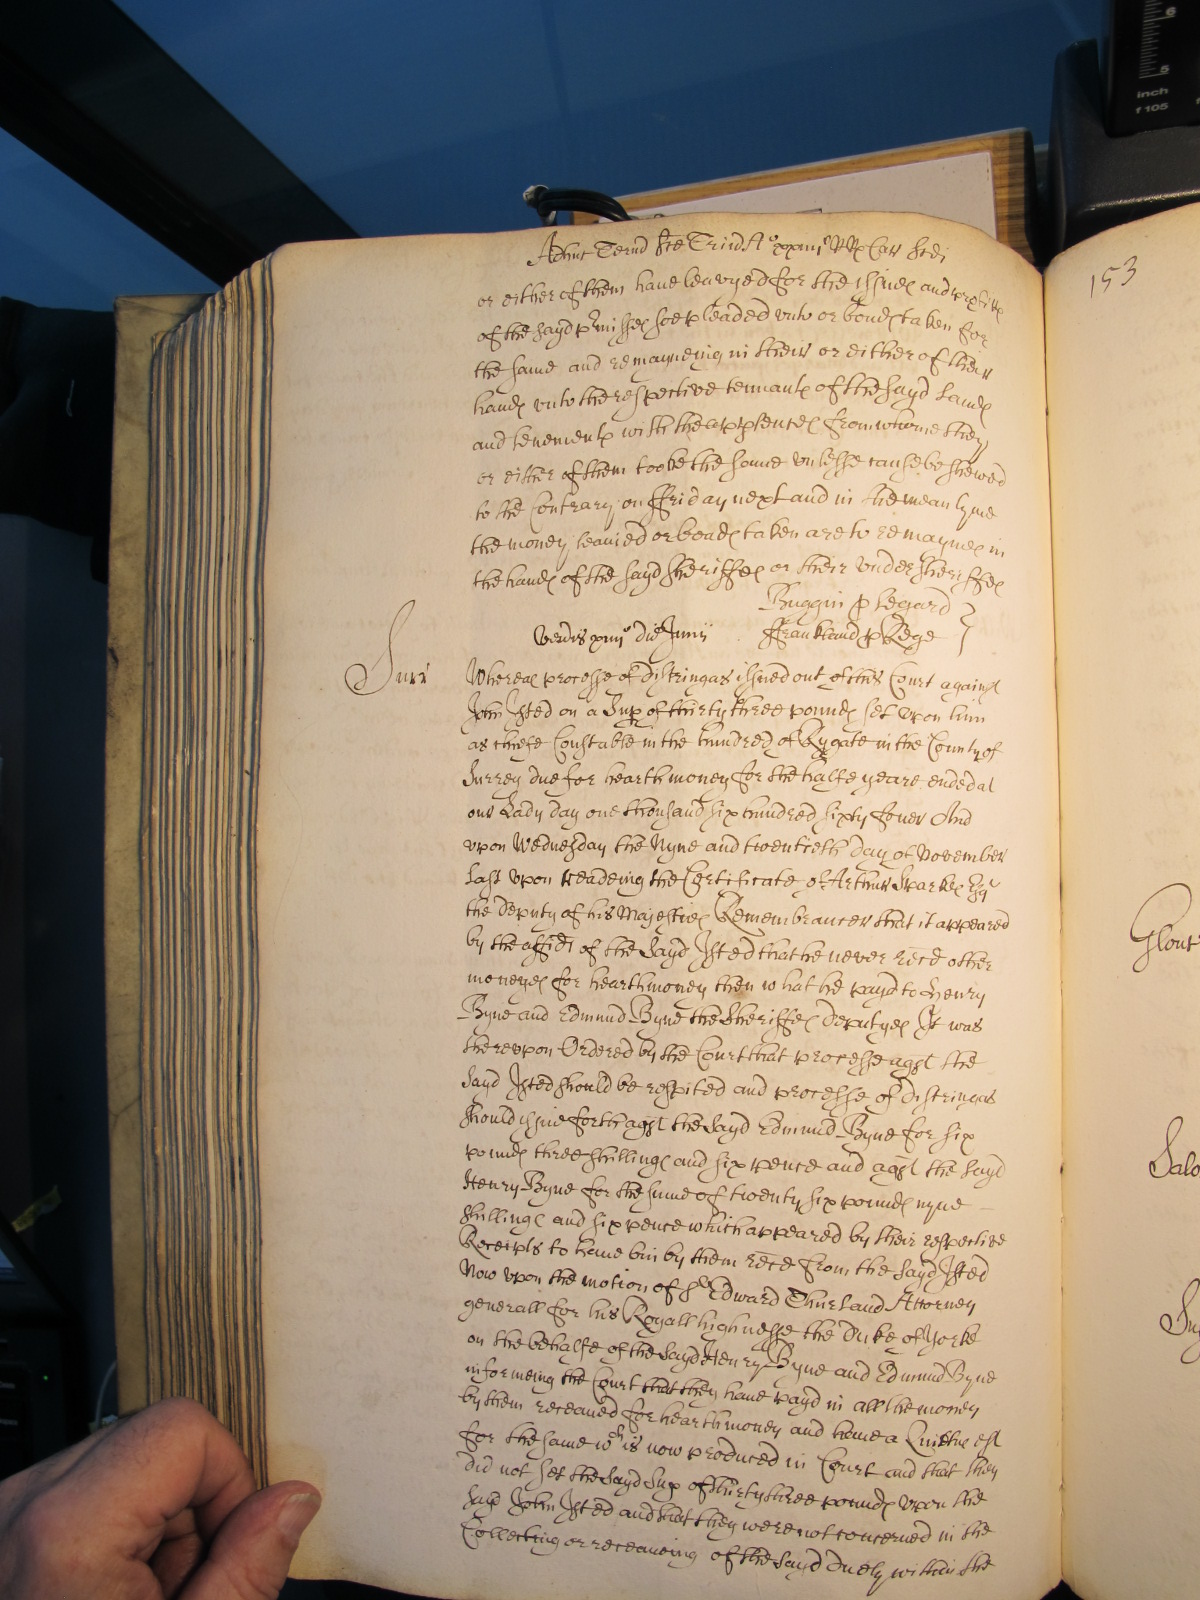 Adhuc Termd Sce Trin A° xxiiij° RRx Car Scdi
153
or either of them have leavyed for the issues and profitts
of the sayd p'misses soe pleaded unto or bonds taken for
the same and remayneing in theire or either of their
hands unto the respective tennants of the sayd Lands
and tenements with the appɫtences from whome they
or either of them tooke the same unlesse cause be shewed
to the Contrary on ffriday next and in the mean tyme
the money leavied or bonds taken are to remayne in
the hands of the sayd Sheriffes or their undersheriffes
Buggin p Legard
ffrankland p Rege
Ven'is xiiij° die Junij
Surr
Whereas processe of distringas issued out of this Court against
John Isted on a Sup of thirty three pounds set upon him
as cheife Constable in the hundred of Rygate in the County of
Surrey due for hearthmoney for the halfe yeare ended at
our Lady day one thousand six hundred sixty fower And
upon Wednesday the Nyne and twentieth day of November
last upon readeing the Certificate of Arthur Sparke Esq
the deputy of his Majesties Remembrancer that it appeared
by the affidt of the Sayd Isted that he never recd other
moneyes for hearthmoney then what he payd to Henry
Byne and Edmund Byne the Sheriffes deputyes It was
thereupon Ordered by the Court that processe agst the
Sayd Isted should be respited and processe of distringas
should issue forth agst the Sayd Edmund Byne for six
pounds three shillings and six pence and agst the sayd
Henry Byne for the sume of twenty six pounds nyne
shillings and six pence which appeared by their respective
Receipts to have bin by them recd from the Sayd Isted
Now upon the motion of Sr Edward Thurland Attorney
generall for his Royall highnesse the Duke of Yorke
on the behalfe of the Sayd Henry Byne and Edmund Byne
informeing the Court that they have payd in all the money
by them receaved for hearthmoney and have a Quietus est
for the same wch is now produced in Court and that they
did not set the Sayd Sup of thirty three pounds upon the
sayd John Isted and that they were not concerned in the
Collecting or receaveing of the Sayd duety within the
Glouc